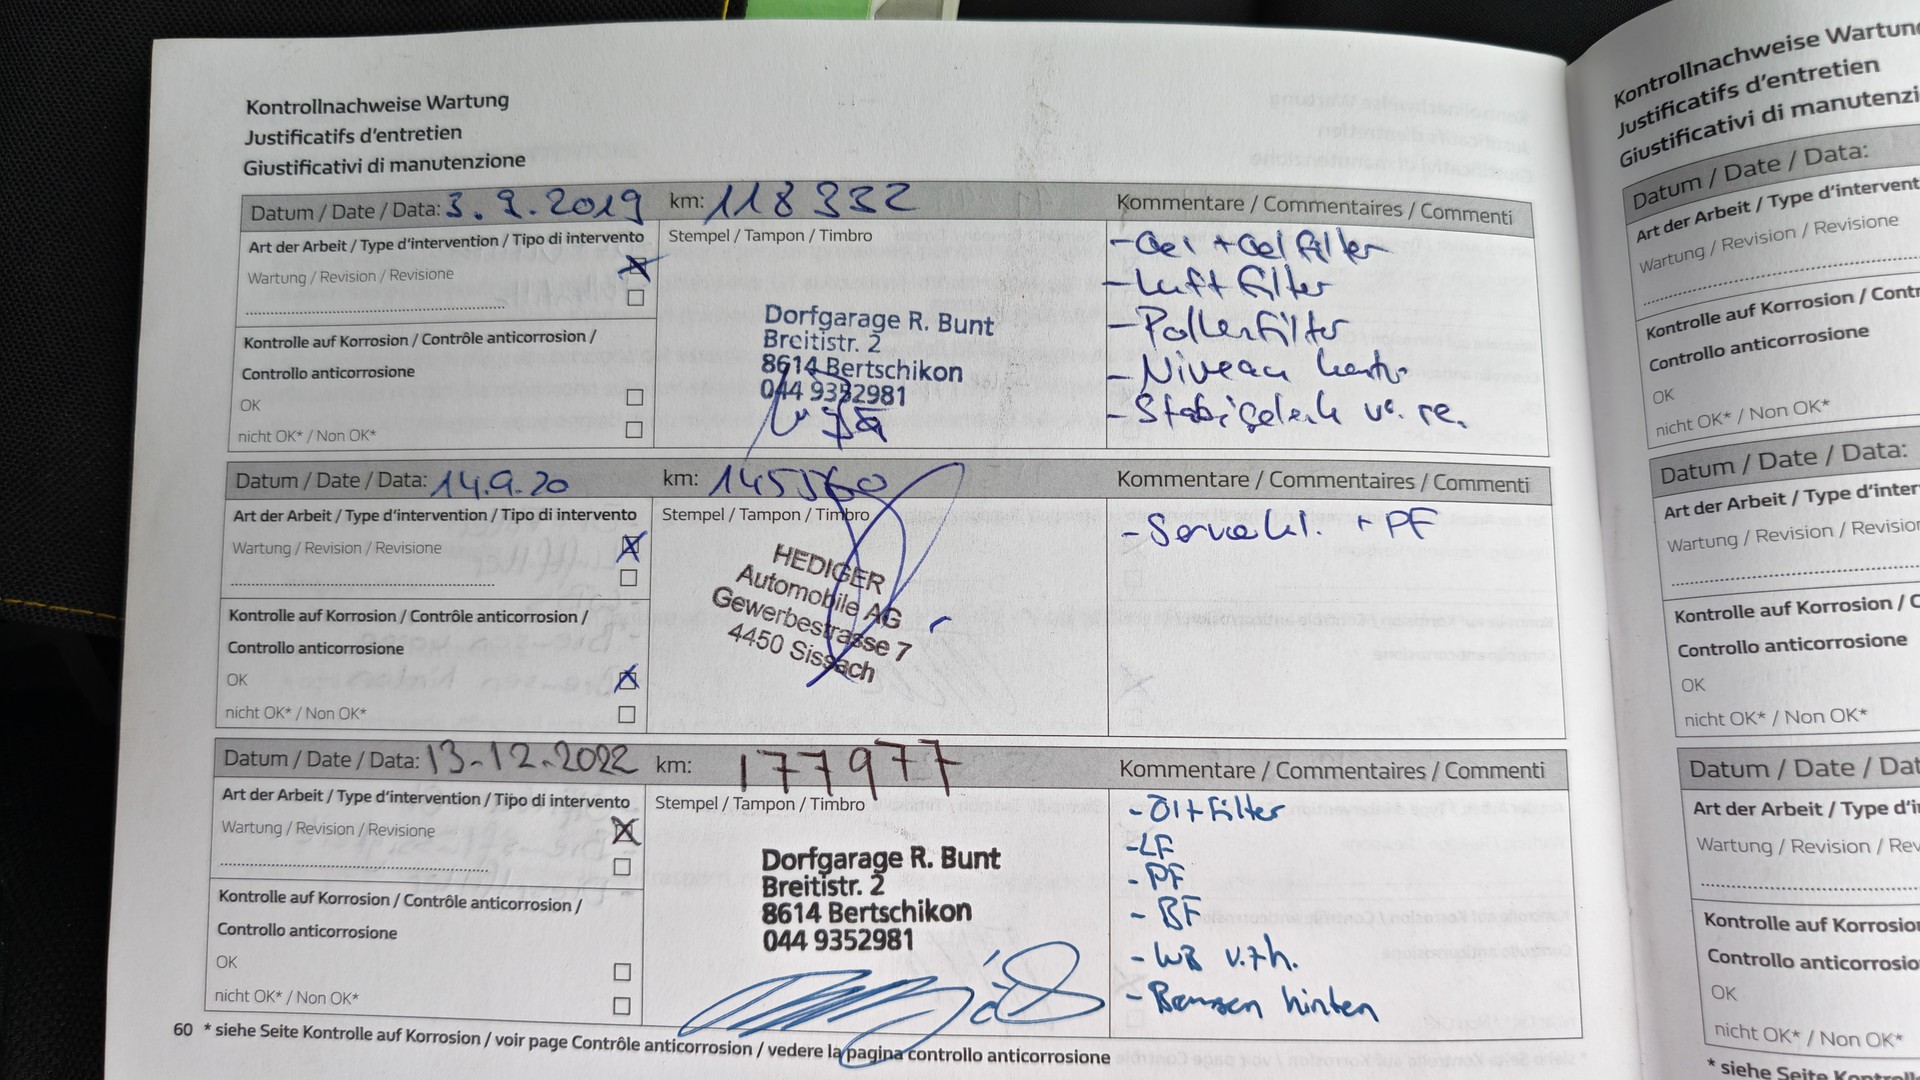 Kontrollnachweise Wartung
Justificatifs d'entretien
Giustificativi di manutenzione
Datum / Date / Data: 3.9.2019 km: 118332 Kommentare / Commentaires / Commenti
Art der Arbeit / Type d'intervention / Tipo di intervento
Stempel / Tampon / Timbro
Wartung / Revision / Revisione
Kontrolle auf Korrosion / Contrôle anticorrosion /
Controllo anticorrosione
OK
nicht OK* / Non OK*
Dorfgarage R. Bunt
Breitistr. 2
8614 Bertschikon
044 9352981
- Oel + Oelfilter
- Luftfilter
- Pollenfilter
- Niveau
- Stabigelenk vo. re.
Datum / Date / Data: 14.9.20 km: Kommentare / Commentaires / Commenti
Art der Arbeit / Type d'intervention / Tipo di intervento
Stempel / Tampon / Timbro
Wartung / Revision / Revisione
Kontrolle auf Korrosion / Contrôle anticorrosion /
Controllo anticorrosione
OK
nicht OK* / Non OK*
HEDIGER
Automobile AG
Gewerbestrasse 7
4450 Sissach
+ PF
Datum / Date / Data: 13.12.2022 km: 177977 Kommentare / Commentaires / Commenti
Art der Arbeit / Type d'intervention / Tipo di intervento
Stempel / Tampon / Timbro
Wartung / Revision / Revisione
Kontrolle auf Korrosion / Contrôle anticorrosion /
Controllo anticorrosione
OK
nicht OK* / Non OK*
Dorfgarage R. Bunt
Breitistr. 2
8614 Bertschikon
044 9352981
- Öl + Filter
- LF
- PF
- BF
- WB v. + h.
- Bremsen hinten
60 * siehe Seite Kontrolle auf Korrosion / voir page Contrôle anticorrosion / vedere la pagina controllo anticorrosione
Kontrollnachweise Wartun
Justificatifs d'entretien
Giustificativi di manutenzi
Datum / Date / Data:
Art der Arbeit / Type d'intervent
Wartung / Revision / Revisione
Kontrolle auf Korrosion / Contr
Controllo anticorrosione
OK
nicht OK* / Non OK*
Datum / Date / Data:
Art der Arbeit / Type d'inter
Wartung / Revision / Revisior
Kontrolle auf Korrosion / C
Controllo anticorrosione
OK
nicht OK* / Non OK*
Datum / Date / Dat
Art der Arbeit / Type d'i
Wartung / Revision / Rev
Kontrolle auf Korrosio
Controllo anticorrosio
OK
nicht OK* / Non OK*
* siehe Seite Kontroll